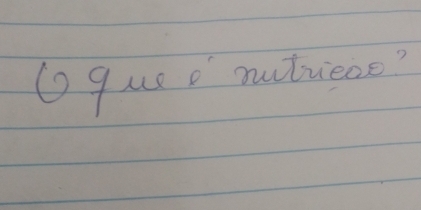 O que é nutrição?